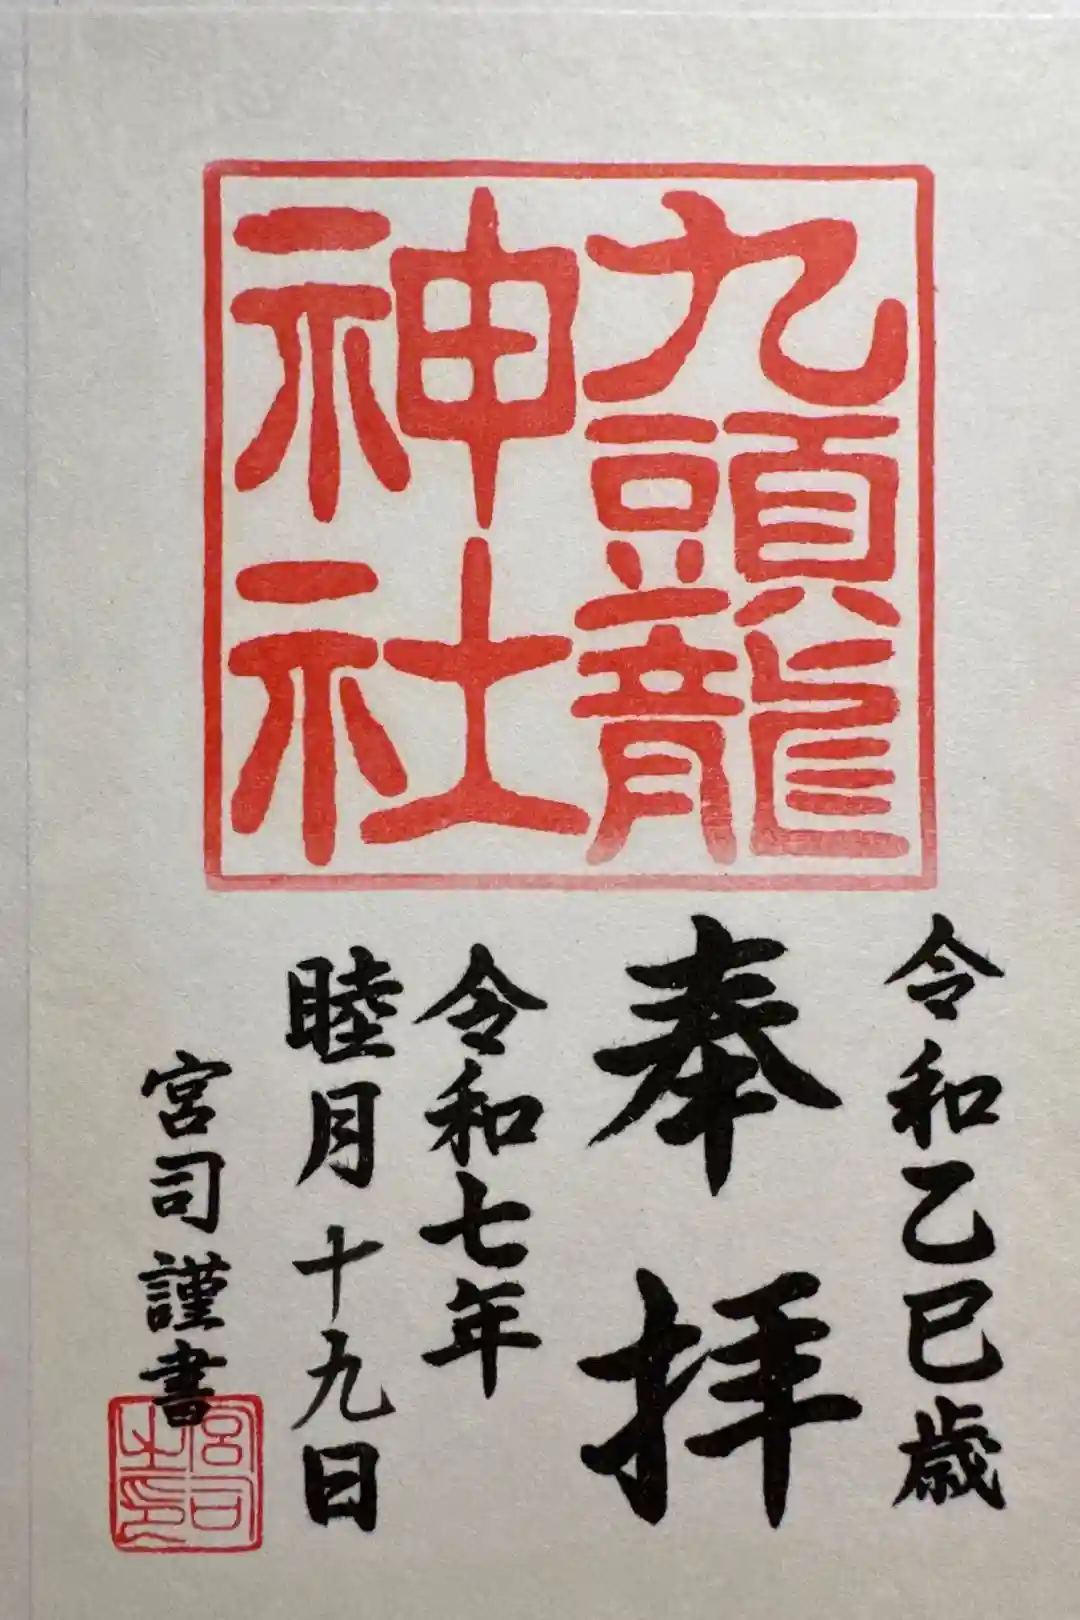 九頭龍
神社
令和乙巳歳
奉拝
令和七年
睦月十九日
宮司謹書
宮司
之印